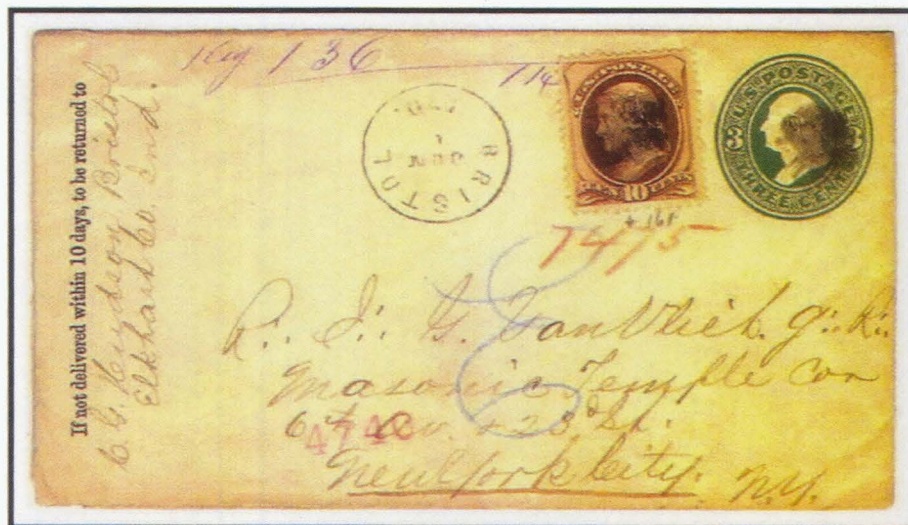 If not delivered within 10 days, to be returned to
C. G. Hudson Bristol
Elkhart Co. Ind.
Reg 136
114
BRISTOL
JUN
1
IND.
U.S. POSTAGE
TEN 10 CENTS
U.S. POSTAGE
3 3
THREE CENTS
7475
R∴ I∴ G. VanVliet. G∴ R∴
Masonic Temple Cor
6th Av. + 23d St.
4740
New York City.
N.Y.